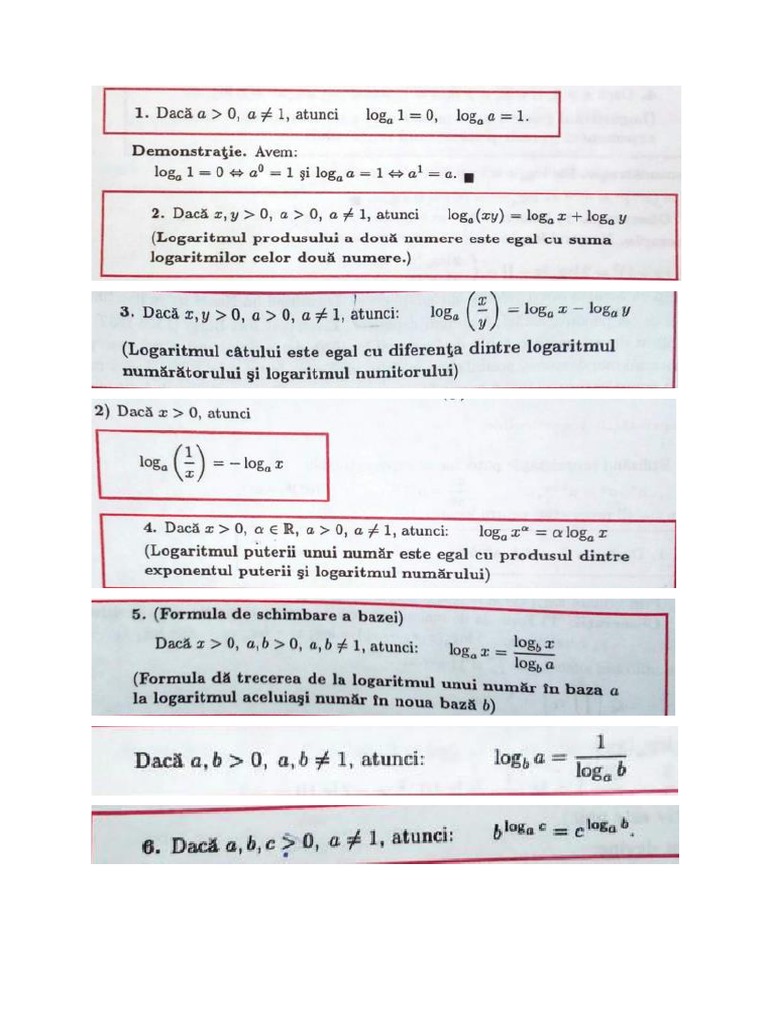 1. Dacă a > 0, a ≠ 1, atunci logₐ 1 = 0, logₐ a = 1.
Demonstraţie. Avem:
logₐ 1 = 0 ⇔ a⁰ = 1 şi logₐ a = 1 ⇔ a¹ = a. ■
2. Dacă x, y > 0, a > 0, a ≠ 1, atunci logₐ(xy) = logₐ x + logₐ y
(Logaritmul produsului a două numere este egal cu suma
logaritmilor celor două numere.)
3. Dacă x, y > 0, a > 0, a ≠ 1, atunci: logₐ (x/y) = logₐ x − logₐ y
(Logaritmul câtului este egal cu diferenţa dintre logaritmul
numărătorului şi logaritmul numitorului)
2) Dacă x > 0, atunci
logₐ (1/x) = − logₐ x
4. Dacă x > 0, α ∈ ℝ, a > 0, a ≠ 1, atunci: logₐ x^α = α logₐ x
(Logaritmul puterii unui număr este egal cu produsul dintre
exponentul puterii şi logaritmul numărului)
5. (Formula de schimbare a bazei)
Dacă x > 0, a, b > 0, a, b ≠ 1, atunci: logₐ x = log_b x / log_b a
(Formula dă trecerea de la logaritmul unui număr în baza a
la logaritmul aceluiaşi număr în noua bază b)
Dacă a, b > 0, a, b ≠ 1, atunci: log_b a = 1 / logₐ b
6. Dacă a, b, c > 0, a ≠ 1, atunci: b^(logₐ c) = c^(logₐ b).